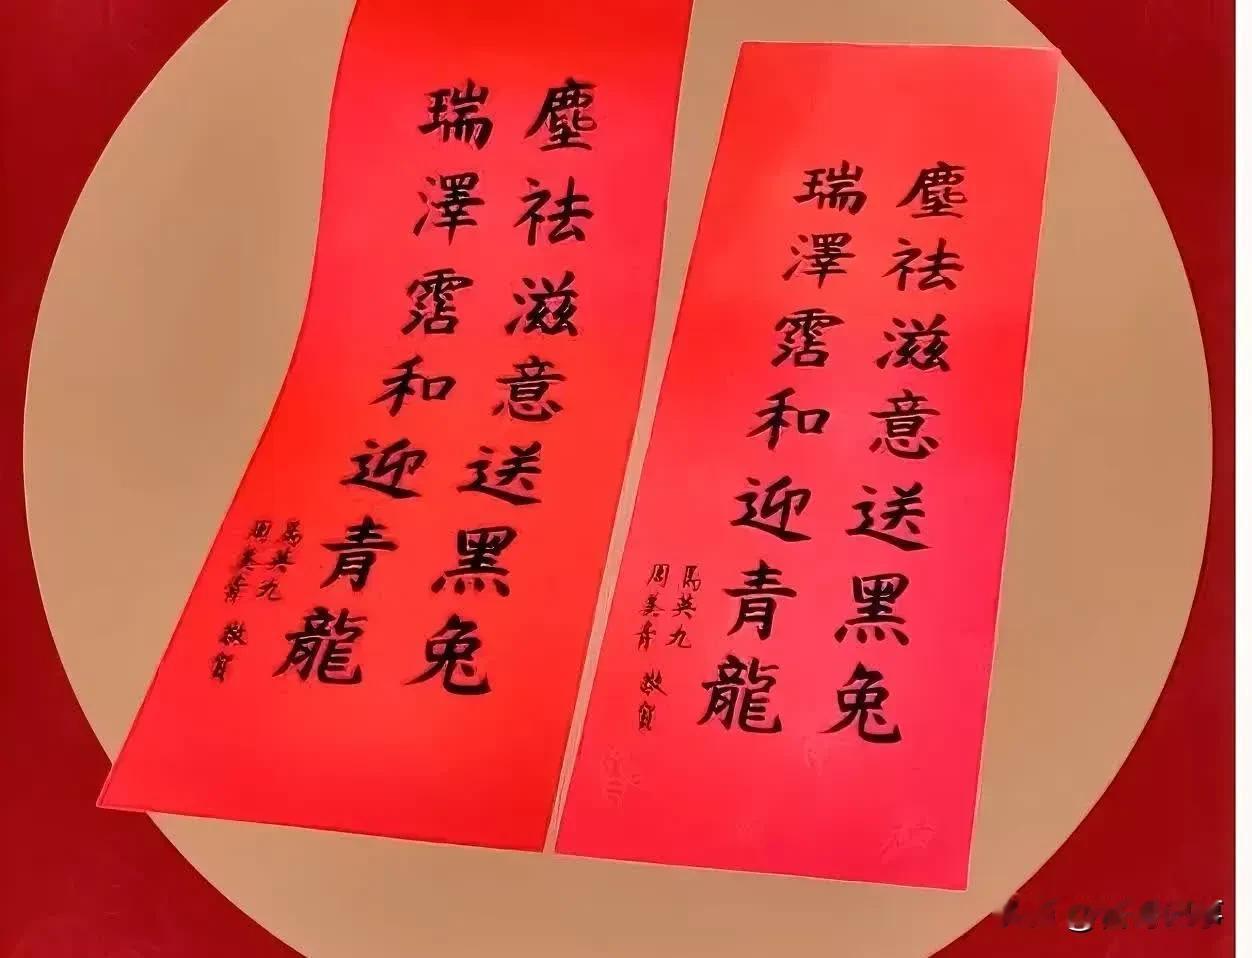 塵祛滋意送黑兔
瑞澤霑和迎青龍
馬英九
周美青 敬賀
塵祛滋意送黑兔
瑞澤霑和迎青龍
馬英九
周美青 敬賀